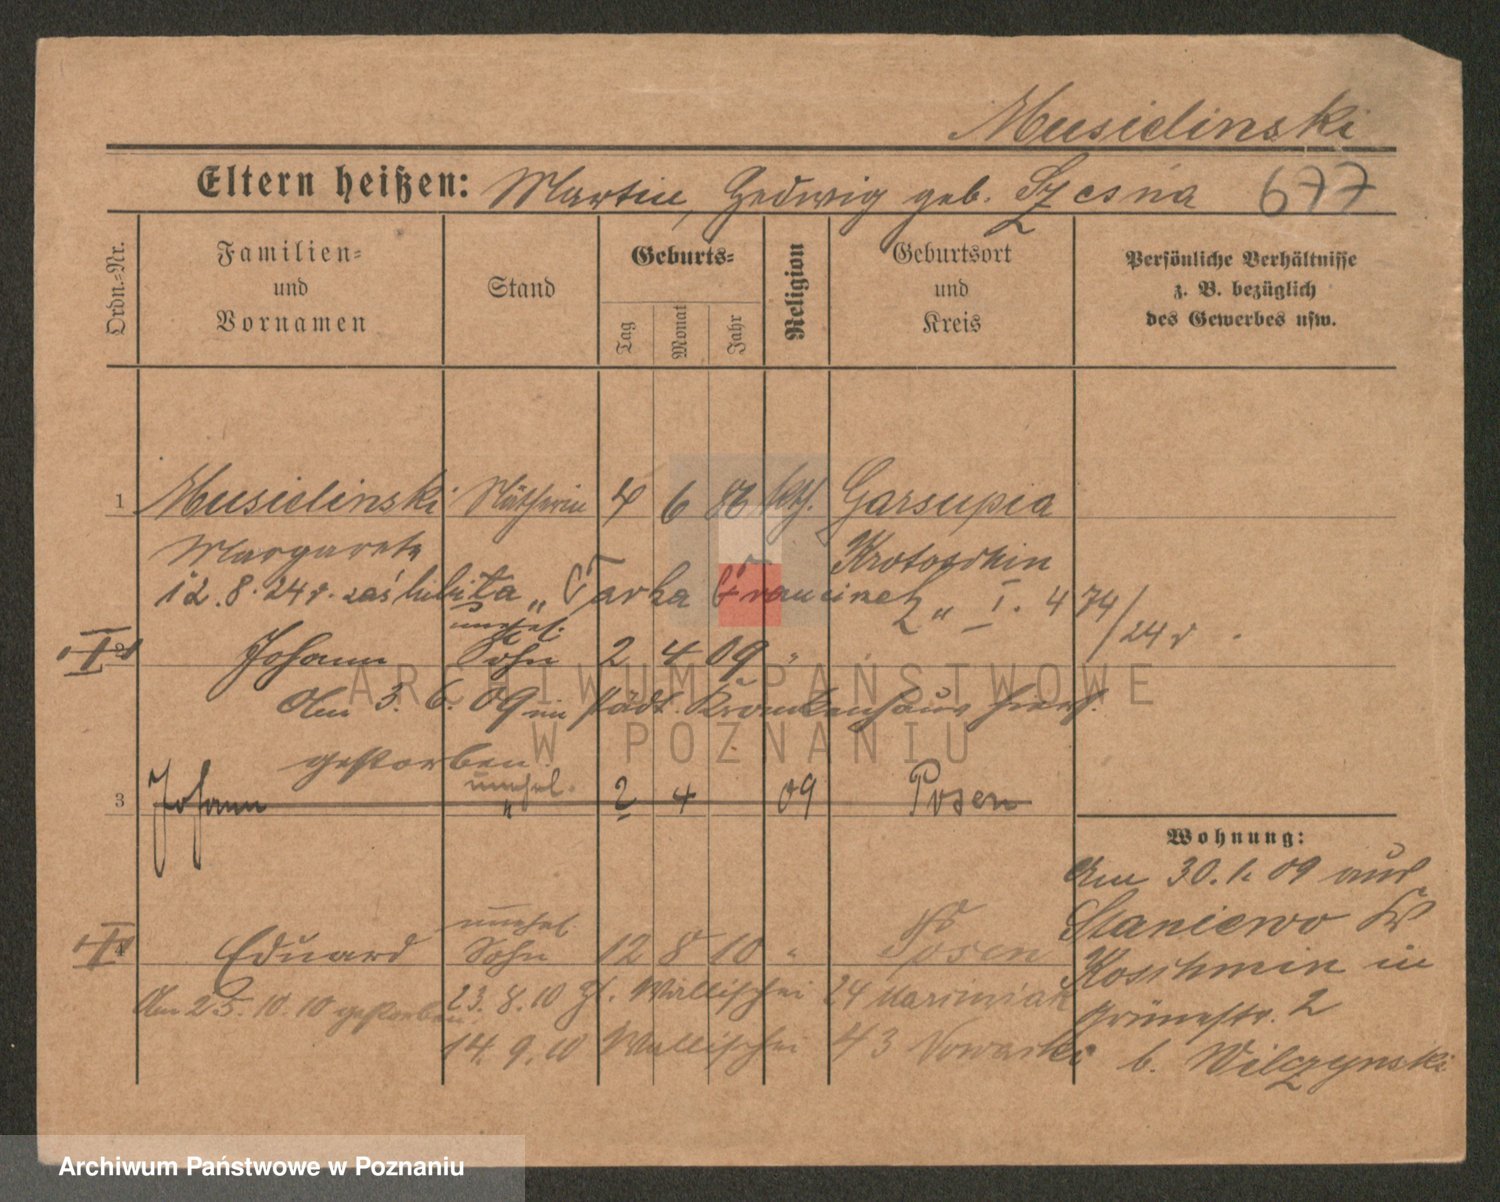 Musielinski
Eltern heißen: Martin, Hedwig geb. Szesna 677
Ordn.-Nr.
Familien- und Vornamen
Stand
Geburts-
Tag
Monat
Jahr
Religion
Geburtsort und Kreis
Persönliche Verhältnisse
z. B. bezüglich
des Gewerbes usw.
1 Musielinski Nätherin 4 6 86 kth. Garsupia
Margareta Krotoschin
12.8.24 r. zaślubiła „Tarka Franciszek„ I. 474/24 r.
unehel.
2 Johann Sohn 2 4 09 "
Am 3. 6. 09 im städt. Krankenhaus hiers.
gestorben.
unehel.
3 Johann " 2 4 09 Posen
Wohnung:
Am 30.1.09 aus
Staniewo Kr
Koschmin in
Grünestr. 2
b. Wilczynski
unehel.
4 Eduard Sohn 12 8 10 " Posen
Am 25.10.10 gestorben.
23.8.10 Wallischei 24
14.9.10 Wallischei 43 Nowacki
ARCHIWUM PAŃSTWOWE
W POZNANIU
Archiwum Państwowe w Poznaniu